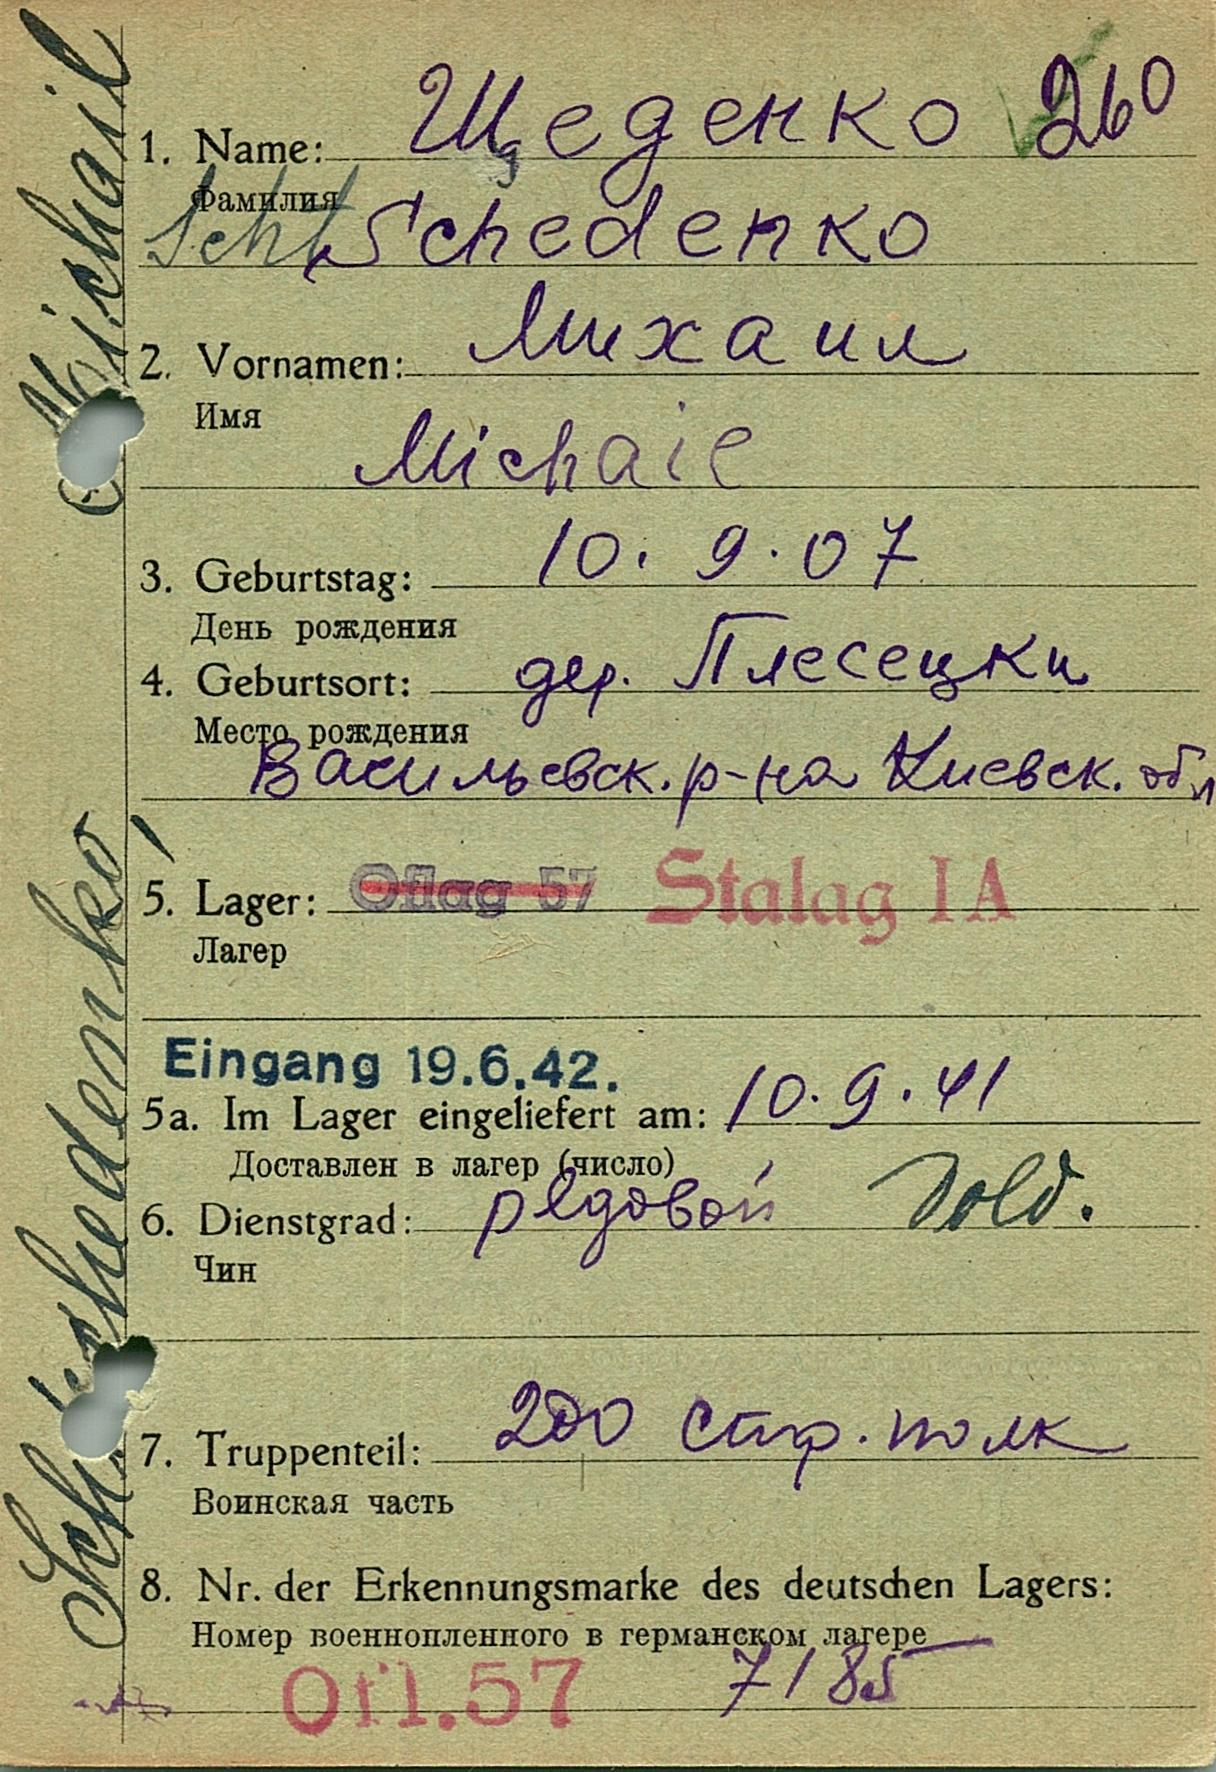 1. Name: Щеденко 260
Фамилия
Scht Schedenko
2. Vornamen: Михаил
Имя
Michail
3. Geburtstag: 10. 9. 07
День рождения
4. Geburtsort: дер. Плесецки
Место рождения
Васильевск. р-на Киевск. обл
5. Lager: Oflag 57 Stalag IA
Лагер
Eingang 19.6.42.
5a. Im Lager eingeliefert am: 10. 9. 41
Доставлен в лагер (число)
6. Dienstgrad: рядовой Sold.
Чин
7. Truppenteil: 200 стр. полк
Воинская часть
8. Nr. der Erkennungsmarke des deutschen Lagers:
Номер военнопленного в германском лагере
Ofl.57 7185
Schtschedenko, Michail